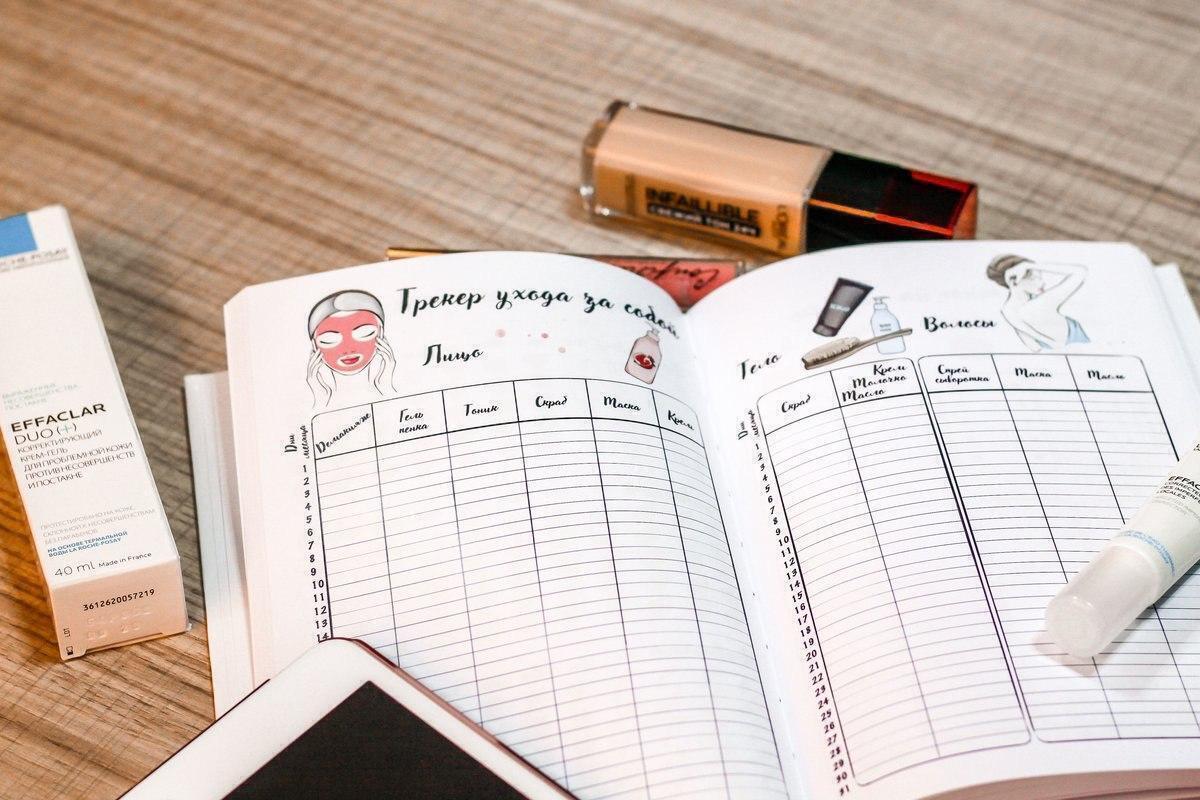 ВЫРАЖЕННЫЕ
НЕСОВЕРШЕНСТВА
ПОСТАКНЕ
EFFACLAR
DUO (+)
КОРРЕКТИРУЮЩИЙ
КРЕМ-ГЕЛЬ
ДЛЯ ПРОБЛЕМНОЙ КОЖИ
ПРОТИВ НЕСОВЕРШЕНСТВ
И ПОСТАКНЕ
ПРОТЕСТИРОВАНО НА КОЖЕ,
СКЛОННОЙ К НЕСОВЕРШЕНСТВАМ
БЕЗ ПАРАБЕНОВ
НА ОСНОВЕ ТЕРМАЛЬНОЙ
ВОДЫ LA ROCHE-POSAY
40 ml Made in France
3612620057219
INFAILLIBLE
СВЕЖИЙ ТОН 24Ч
Трекер ухода за собой
Лицо
Дни месяца
Демакияж
Гель пенка
Тоник
Скраб
Маска
Крем
1
2
3
4
5
6
7
8
9
10
11
12
13
14
Тело
Волосы
Дни месяца
Скраб
Крем
Молочко
Масло
Спрей
сыворотка
Маска
Масло
1
2
3
4
5
6
7
8
9
10
11
12
13
14
15
16
17
18
19
20
21
22
23
24
25
26
27
28
29
30
31